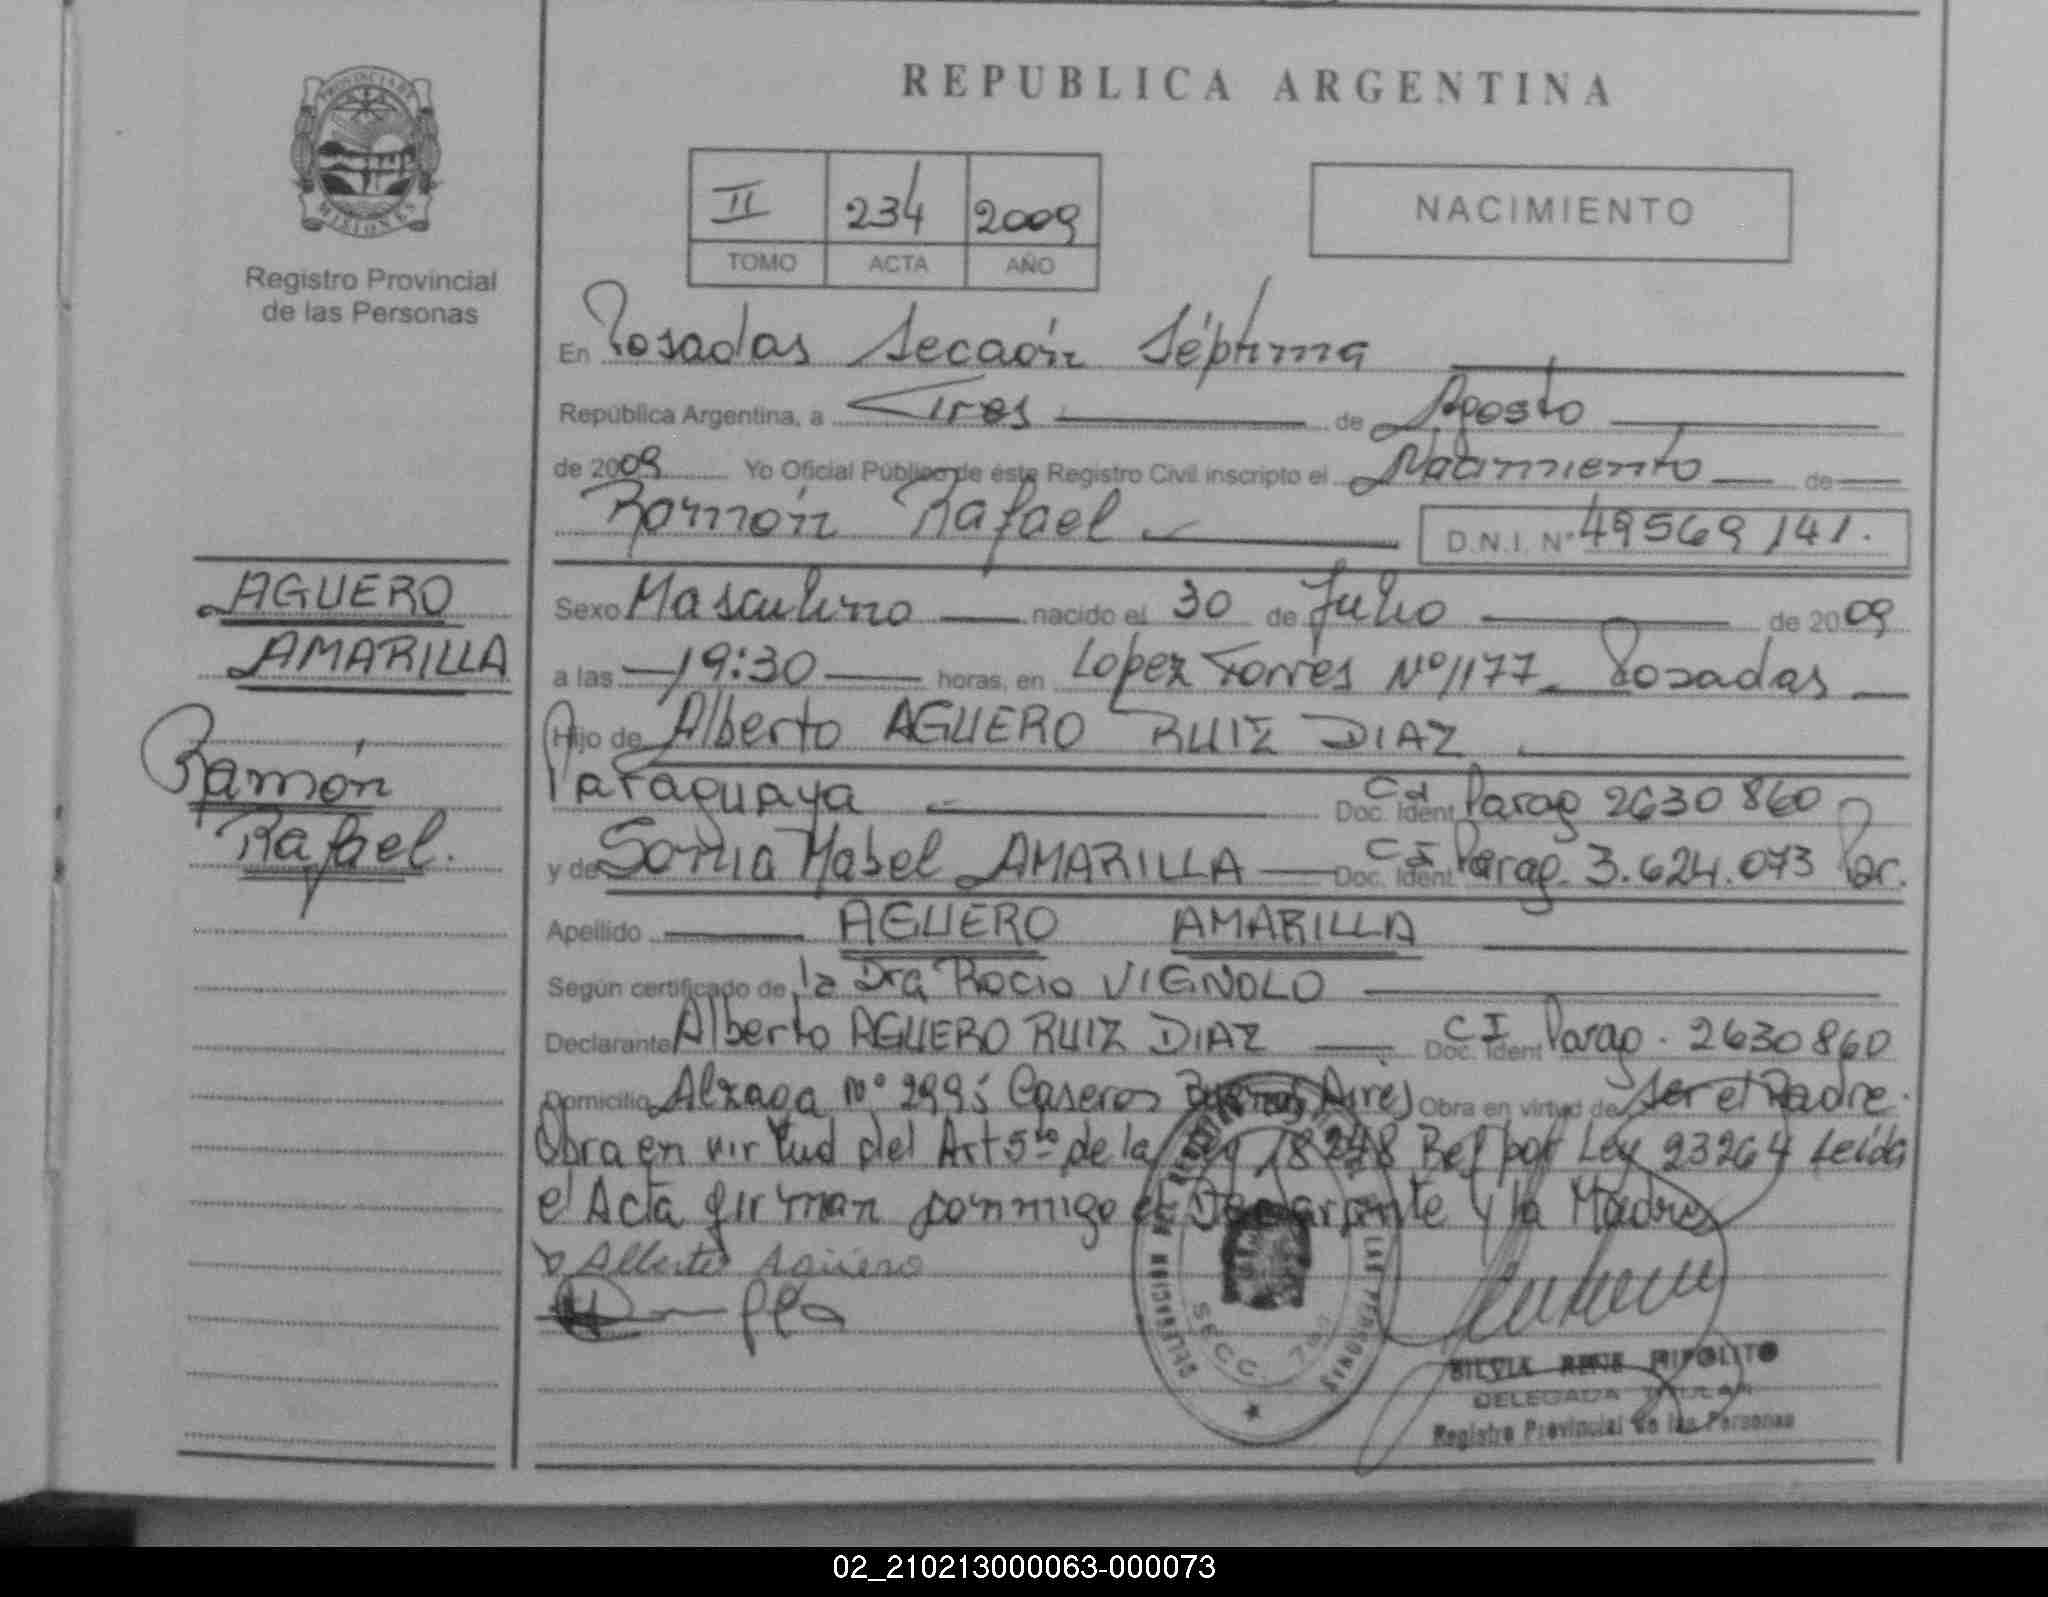 REPUBLICA ARGENTINA
PROVINCIA DE
MISIONES
Registro Provincial
de las Personas
II 234 2009
TOMO ACTA AÑO
NACIMIENTO
En Posadas Sección Séptima
República Argentina, a Tres de Agosto
de 2009 Yo Oficial Público de este Registro Civil inscripto el Nacimiento de
Ramón Rafael D.N.I. Nº 49569141.
AGUERO
AMARILLA
Ramón
Rafael.
Sexo Masculino nacido el 30 de Julio de 2009
a las 19:30 horas, en Lopez Torres Nº 1177 Posadas
Hijo de Alberto AGUERO RUIZ DIAZ
Paraguaya Doc. Ident CI Parag 2630860
y de Sonia Mabel AMARILLA Doc. Ident CI Parag. 3.624.073 Par.
Apellido AGUERO AMARILLA
Según certificado de la Dra Rocio VIGNOLO
Declarante Alberto AGUERO RUIZ DIAZ Doc. Ident CI Parag. 2630860
Domicilio Alzaga Nº 2995 Caseros Buenos Aires Obra en virtud de Ser el Padre.
Obra en virtud del Art 5to de la Ley 18248 Ref por Ley 23264 Leída
el Acta firman conmigo el Declarante y la Madre
Alberto Agüero
DELEGACION DE LAS PERSONAS
SECC. 7
SILVIA RENE HIPOLITO
DELEGADA TITULAR
Registro Provincial de las Personas
02_210213000063-000073